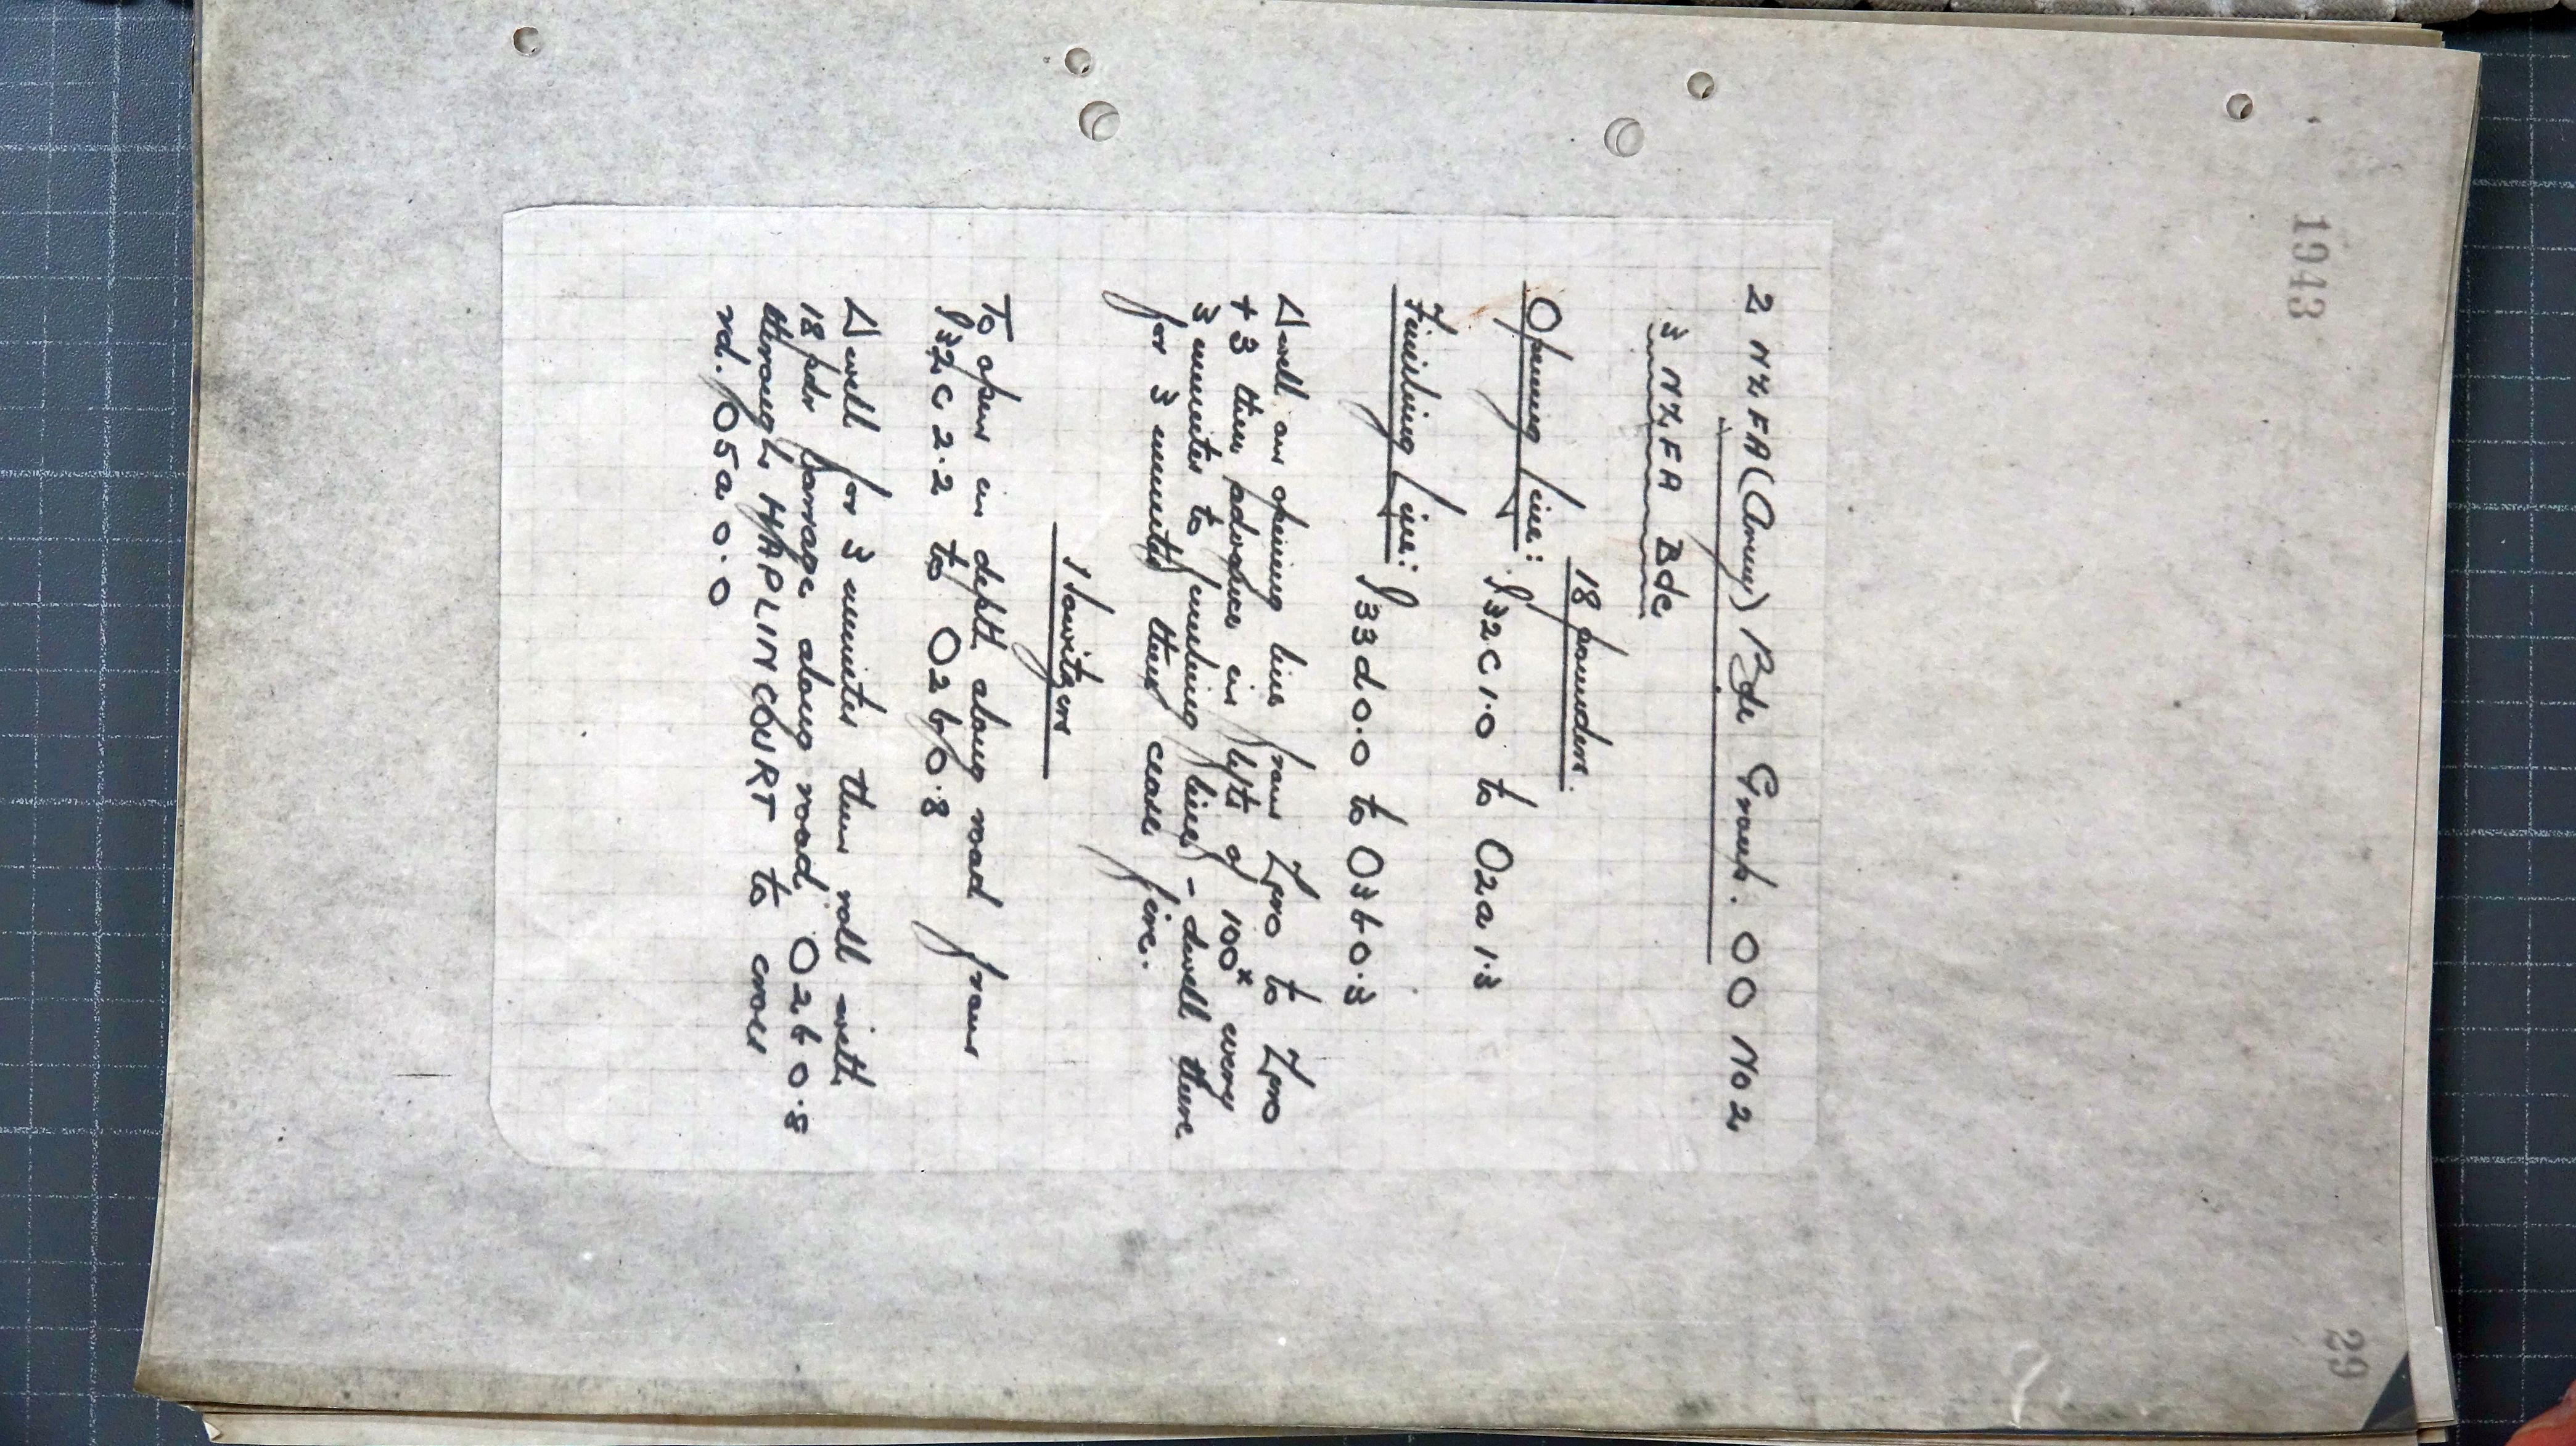 1943
29
2 NZFA (Army) Bde Group. OO No 2
3 NZFA Bde
18 pounders.
Opening Line: P32c1.0 to O2a1.3
Finishing Line: P33d0.0 to O3b0.3
Dwell on opening line from Zero to Zero
+ 3 then advances in lifts of 100x every
3 minutes to finishing line - dwell there
for 3 minutes then cease fire.
Howitzers
To open in depth along road from
P32c2.2 to O2b0.8
Dwell for 3 minutes then roll with
18 pdr barrage along road O2b0.8
through HAPLINCOURT to cross
rd. O5a0.0